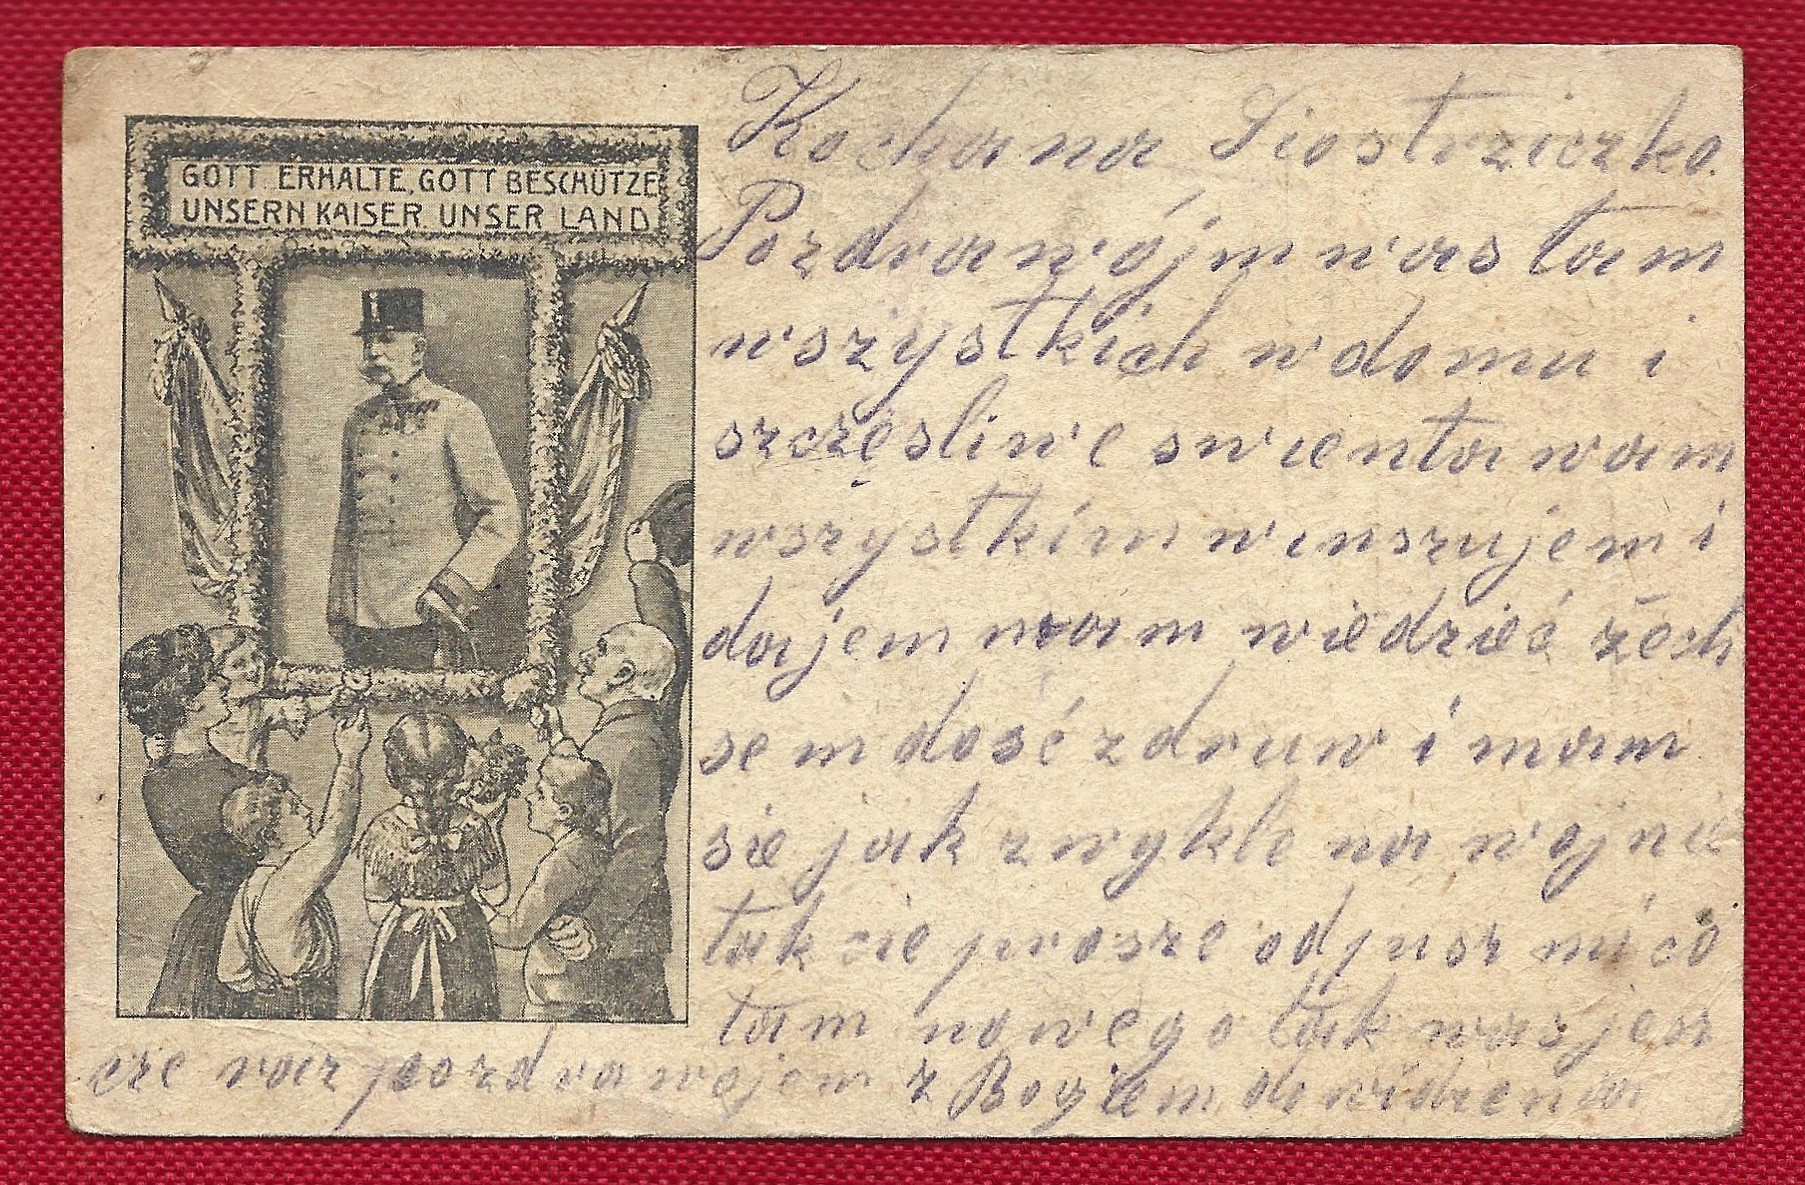 GOTT ERHALTE, GOTT BESCHÜTZE
UNSERN KAISER, UNSER LAND
Kochana Siostrziczko.
Pozdrawójm was tam
wszystkich w domu i
szczęsliwe swienta wam
wszystkim winszujem i
dajem wam wiedzieć żech
sem dosć zdruw i mam
sie jak zwykle na wojnie
tak cie prosze odpusz mi co
tam nowego tak was jesz
cze raz pozdrawojem z Bogiem do widzenia